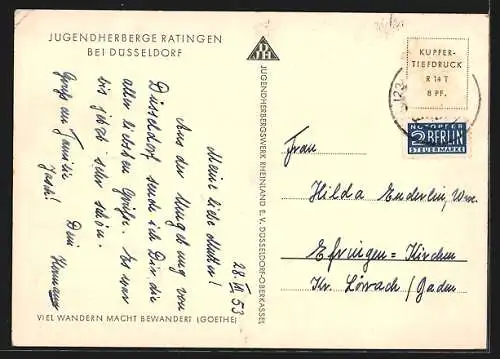 JUGENDHERBERGE RATINGEN
BEI DÜSSELDORF
28. VII. 53
Meine liebe Mutter!
Aus der Umgebung von
Düsseldorf sende ich Dir die
allerliebsten Grüße. Es war
bis jetzt sehr schön.
Gruß an Familie
Dein Hermann
VIEL WANDERN MACHT BEWANDERT (GOETHE)
DJH
JUGENDHERBERGSWERK RHEINLAND E.V. DÜSSELDORF-OBERKASSEL
KUPFER-
TIEFDRUCK
R 14 T
8 PF.
NOTOPFER
2 BERLIN
STEUERMARKE
Frau
Hilda Enderlin, Wwe.
Efringen=Kirchen
Kr. Lörrach (Baden